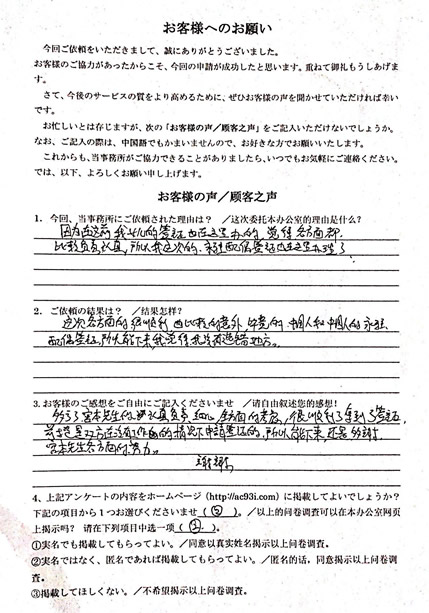 お客様へのお願い
今回ご依頼をいただきまして、誠にありがとうございました。
お客様のご協力があったからこそ、今回の申請が成功したと思います。重ねて御礼もうしあげま
す。
さて、今後のサービスの質をより高めるために、ぜひお客様の声を聞かせていただければ幸い
です。
お忙しいとは存じますが、次の「お客様の声／顧客之声」をご記入いただけないでしょうか。
なお、ご記入の際は、中国語でもかまいませんので、お好きな方でお願いいたします。
これからも、当事務所がご協力できることがありましたら、いつでもお気軽にご連絡ください。
では、以下、よろしくお願い申し上げます。
お客様の声／顧客之声
1．今回、当事務所にご依頼された理由は？ ／这次委托本办公室的理由是什么？
因为在这前我女儿的签证也在这里办的，觉得各方面都
比较负责认真，所以我这次的 配偶签证也在这里办理了
2．ご依頼の結果は？ ／结果怎样？
这次各方面的很顺利 也比较的意外 中国人和中国人的永驻
配偶签证，所以能下来，我觉得我没有选错地方。
3.お客様のご感想をご自由にご記入くださいませ ／请自由叙述您的感想！
宫本先生的认真负责 细心，全方面的考虑，很顺利了拿到了签证，
双方在没有工作的情况下申请签证的，所以能下来 还是多谢
宫本先生各方面的努力。
谢谢
4、上記アンケートの内容をホームページ（http://ac93i.com）に掲載してよいでしょうか？
下記の項目から1つお選びくださいませ（②）。／以上的问卷调查可以在本办公室网页
上揭示吗？ 请在下列项目中选一项（②）。
①実名でも掲載してもらってよい。／同意以真实姓名揭示以上问卷调查。
②実名ではなく、匿名であれば掲載してもらってよい。／匿名的话，同意揭示以上问卷调
查。
③掲載してほしくない。／不希望揭示以上问卷调查。